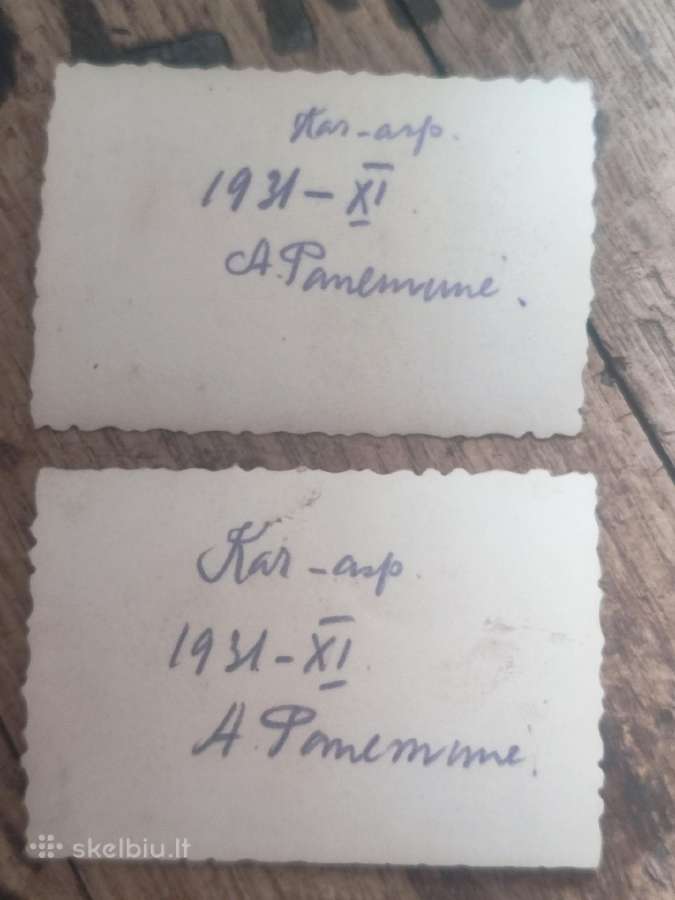 Kar-asp.
1931-XI
A. Panemunė.
Kar-asp.
1931-XI
A. Panemune.
skelbiu.lt